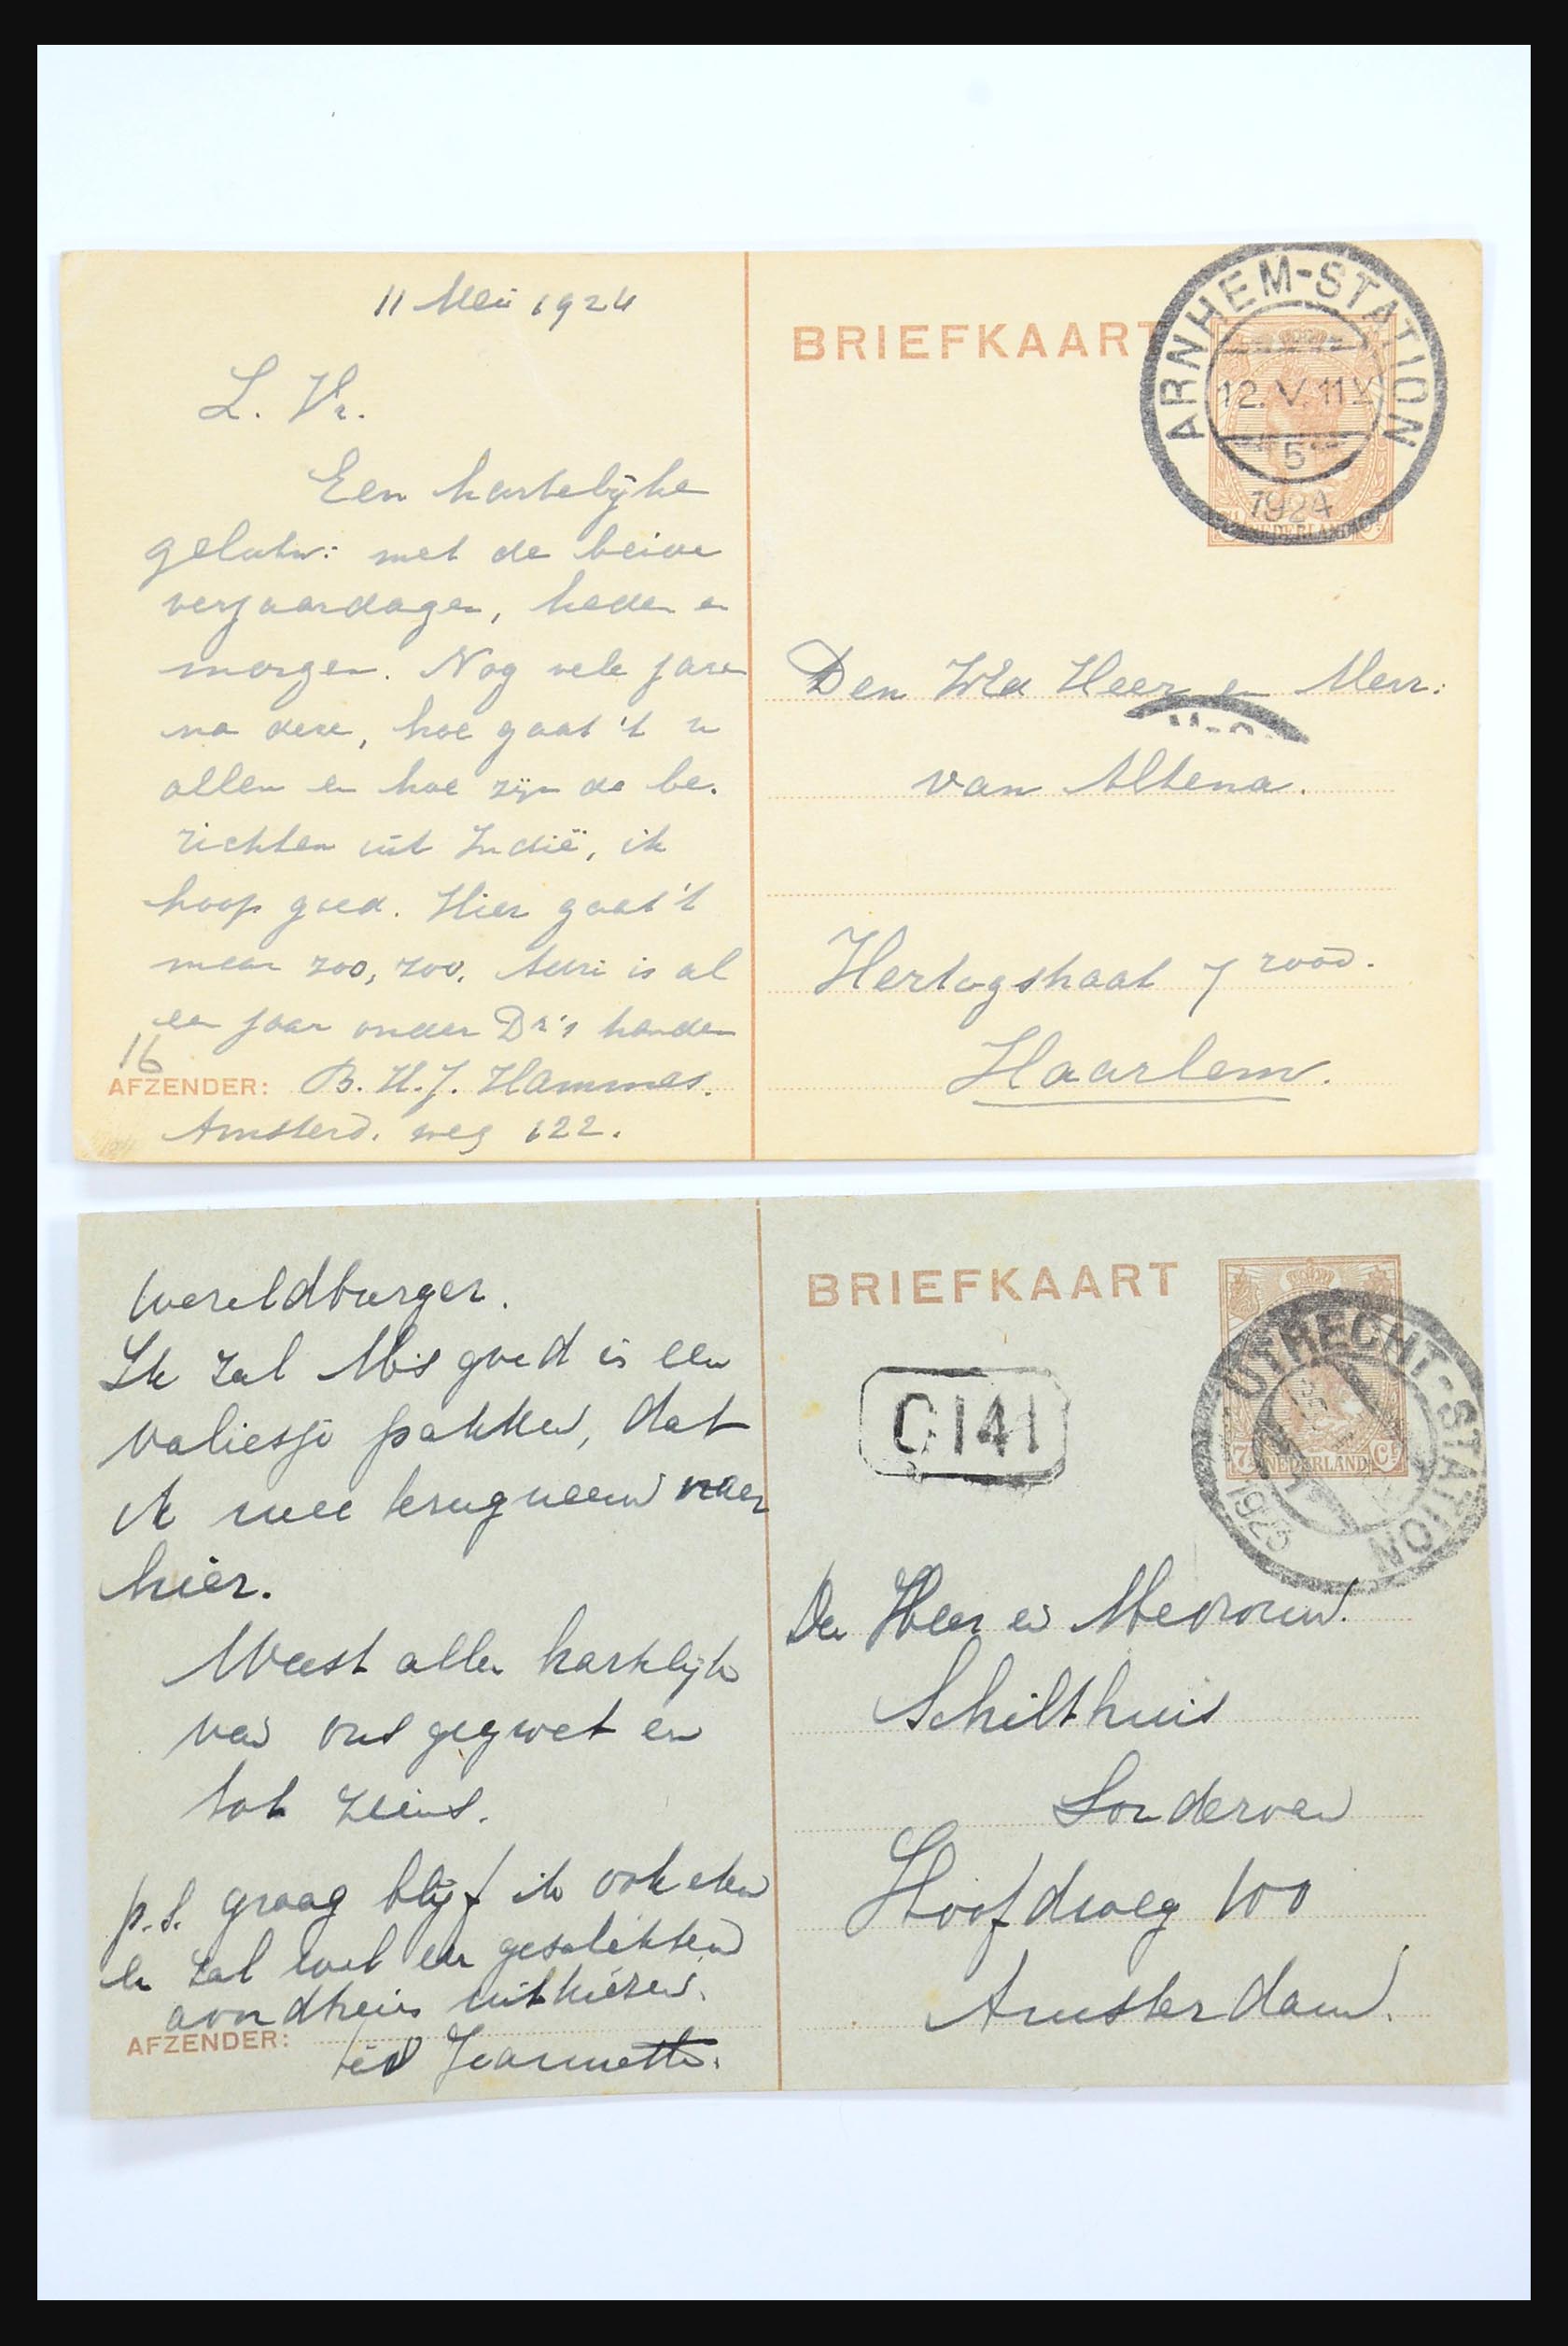 11 Mei 1924
L. Vr.
Een hartelijke
gelukw: met de beide
verjaardagen, heden en
morgen. Nog vele jaren
na deze, hoe gaat 't u
allen en hoe zijn de be-
richten uit Indië, ik
hoop goed. Hier gaat 't
maar zoo, zoo. is al
een jaar onder Dr's handen
16
AFZENDER: B. H. J. Hammes.
Amsterd. weg 122.
BRIEFKAART
ARNHEM-STATION
12. V. 11 V
5
1924
NEDERLAND
Den WEd Heer en Mevr:
van Altena.
Hertogstraat 7 rood.
Haarlem.
Wereldburger.
Ik zal goed is een
valiesje pakken, dat
ik mee terugneem naar
hier.
Weest allen hartelijk
van ons gegroet en
tot ziens.
p.s. graag blijf ik ook eten
en zal wel een geschikten
avondtrein uitkiezen.
AFZENDER: Jeannette.
BRIEFKAART
C 141
UTRECHT-STATION
1925
7½ NEDERLAND Ct
Den Heer en Mevrouw.
Schilthuis
Sonderen
Hoofdweg 100
Amsterdam.